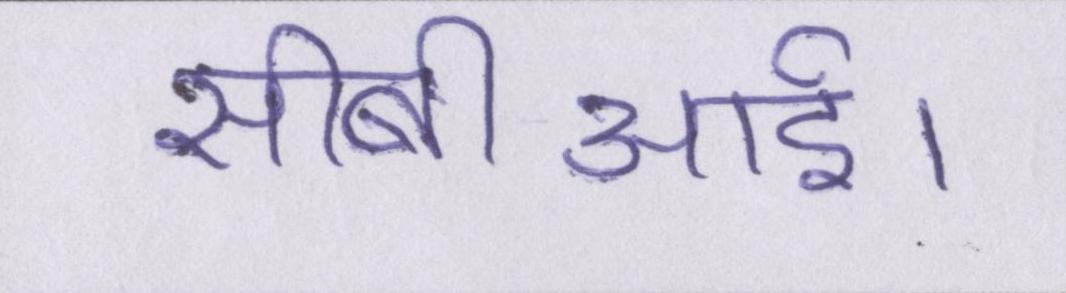 सीबीआई।